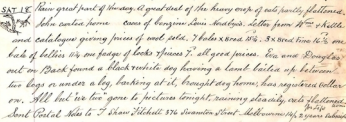 SAT 18 Rain great part of the day. A great deal of the heavy crop of oats partly flattened
John carted home cases of benzine Louis Healey's. Letter from Wm
and catalogue giving prices of wool sold. 7 bales
bale of bellies 11¾ one fadge of locks 7 pieces 7. all good prices. Eva and Douglas
out on Back found a black & white dog having a lamb bailed up between
two logs or under a log, barking at it, brought dog home, has registered collar
on. All but we two gone to pictures tonight, raining steadily, oats flattened.
Sent Postal Notes to T Shaw Fitchett 376 Swanston Street Melbourne 14/6 2 years